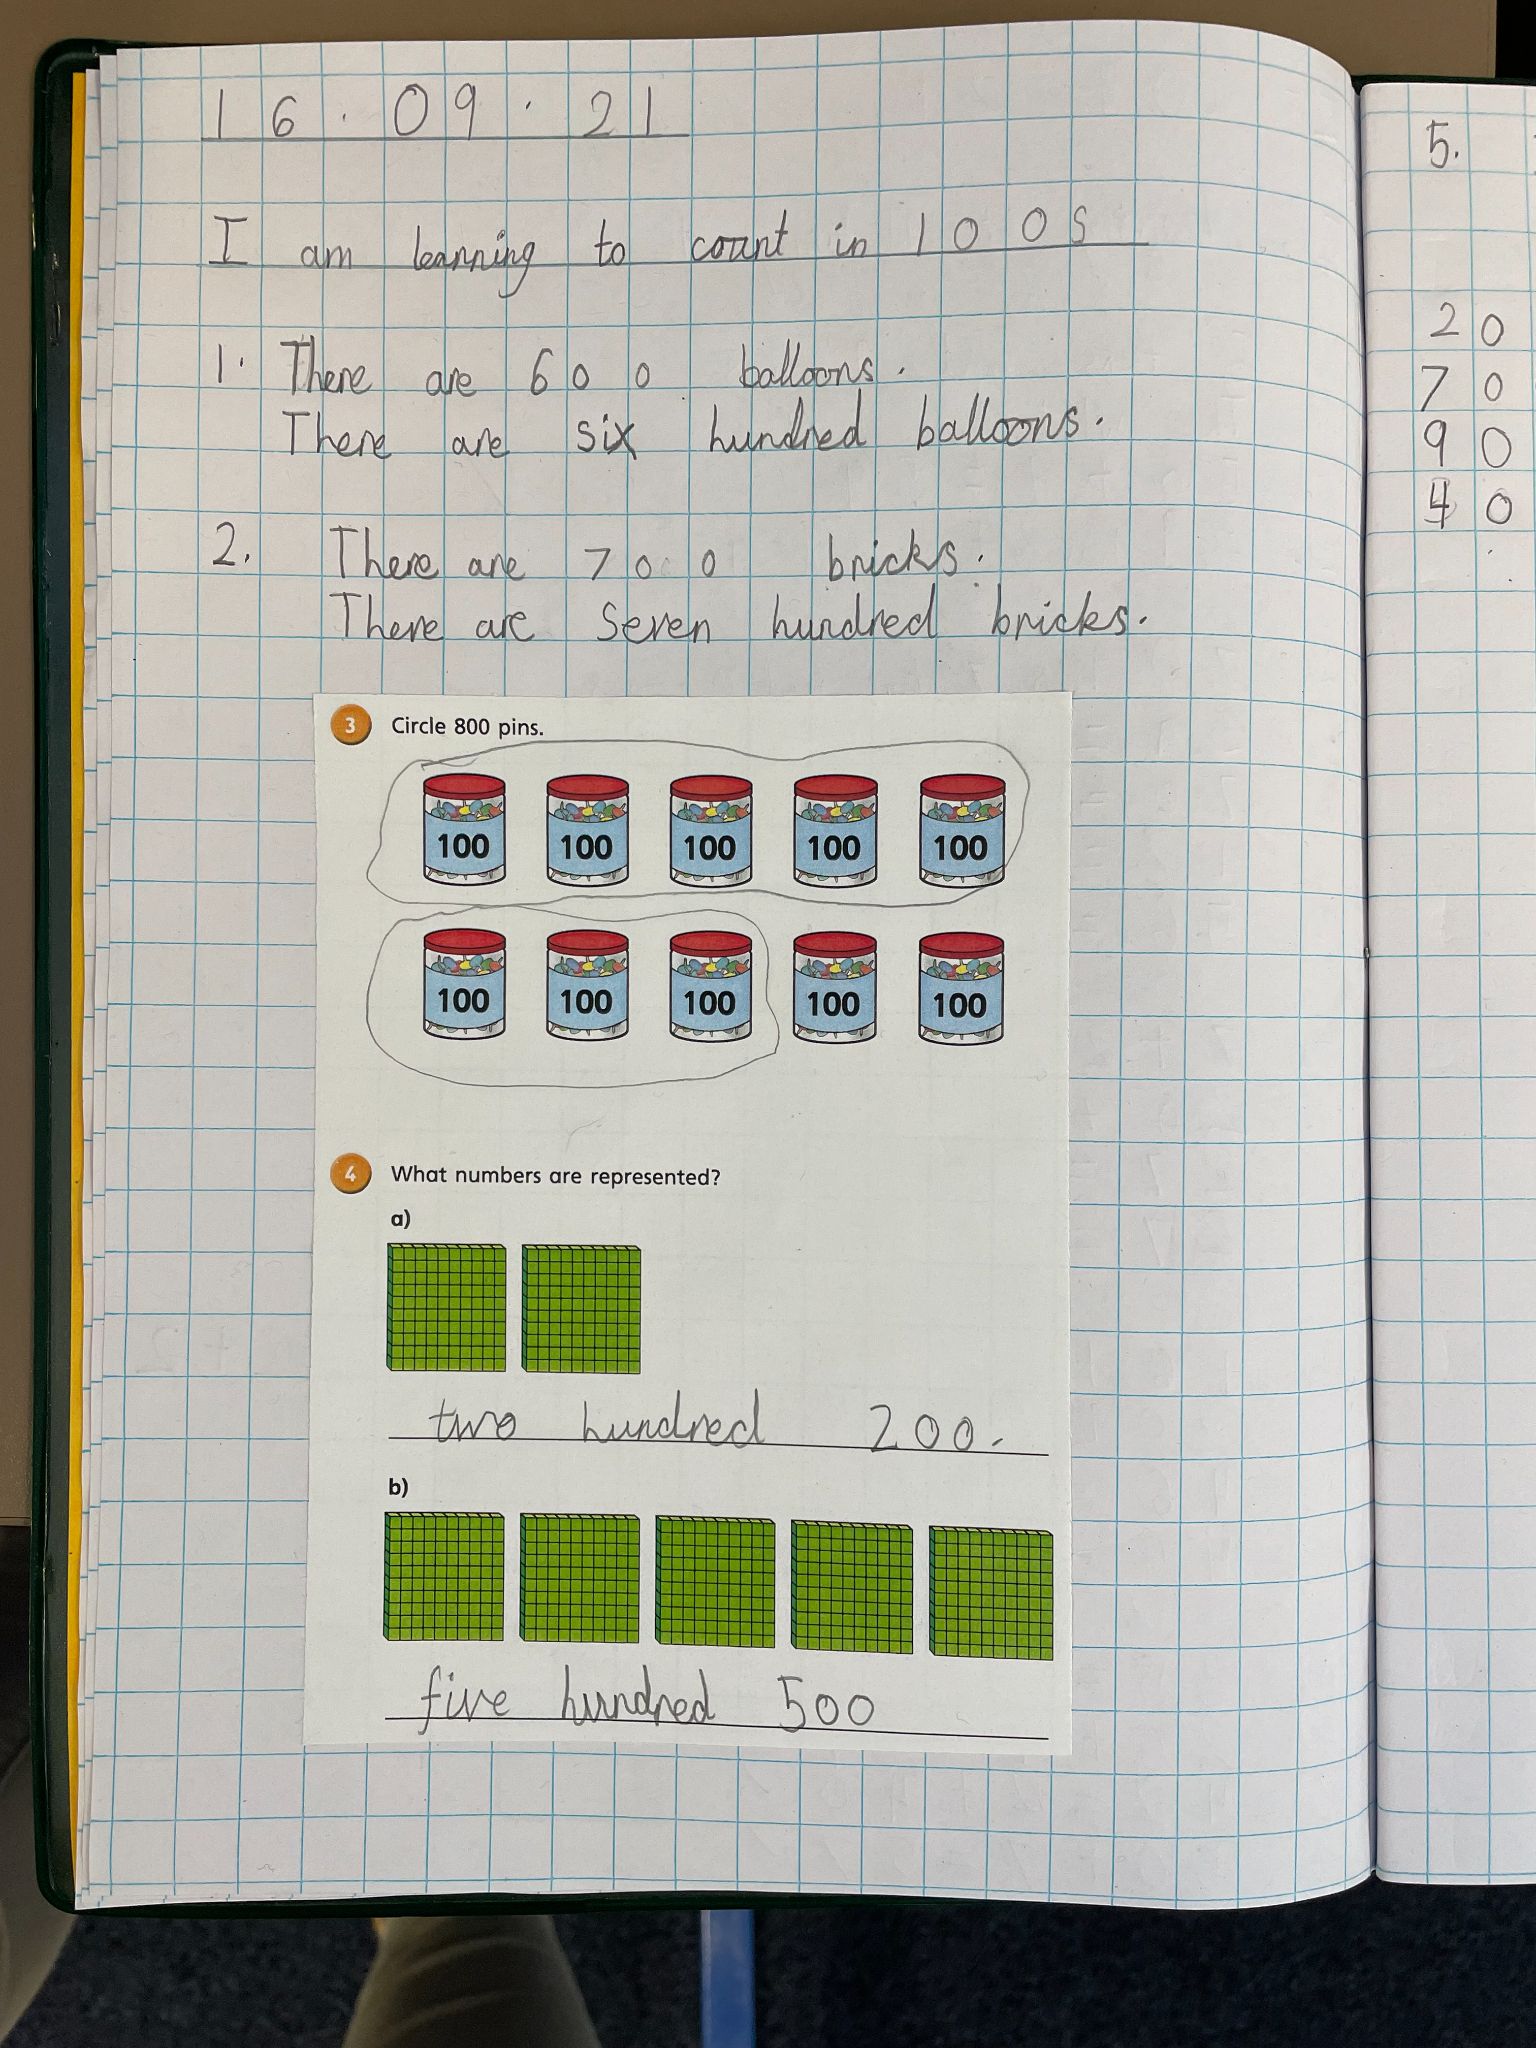 16.09.21
I am learning to count in 100s
1. There are 600 balloons.
There are six hundred balloons.
2. There are 700 bricks.
There are seven hundred bricks.
3 Circle 800 pins.
100 100 100 100 100
100 100 100 100 100
4 What numbers are represented?
a)
two hundred 200.
b)
five hundred 500
5.
20
70
90
40